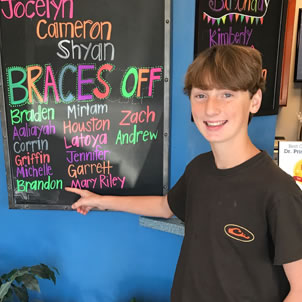 Jocelyn
Cameron
Shyan
BRACES OFF
Braden Miriam Zach
Aaliayah Houston Andrew
Corrin Latoya
Griffin Jennifer
Michelle Garrett
Brandon Mary Riley
Birthday
Kimberly
Dr. Pro